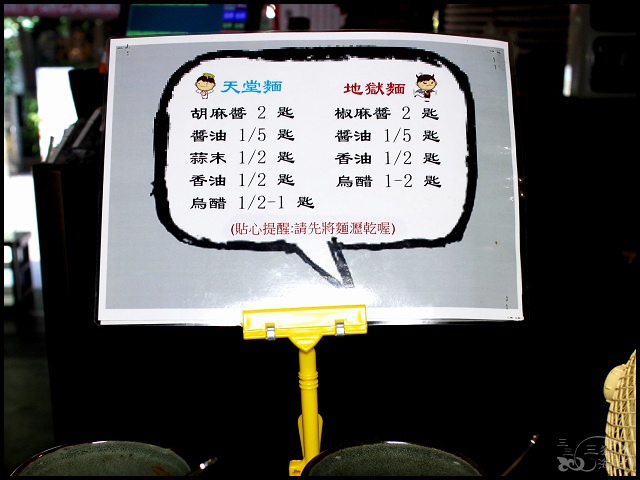 天堂麵
胡麻醬 2 匙
醬油 1/5 匙
蒜末 1/2 匙
香油 1/2 匙
烏醋 1/2-1 匙
地獄麵
椒麻醬 2 匙
醬油 1/5 匙
香油 1/2 匙
烏醋 1-2 匙
(貼心提醒:請先將麵瀝乾喔)